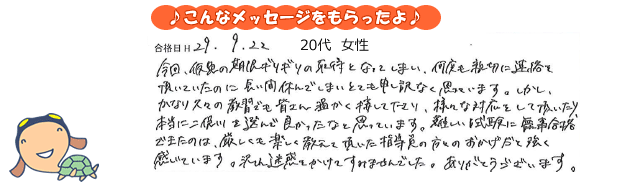 ♪こんなメッセージをもらったよ♪
合格日 H29.9.22 20代 女性
今回、仮免の期限ギリギリの取得となってしまい、何度も親切に連絡を
頂いていたのに長い間休んでしまいとても申し訳なく思っています。しかし、
かなり久々の教習でも皆さん温かく接して下さり、様々な対応をして頂いたり
本当に二俣川を選んで良かったなと思っています。難しい試験に無事合格
できたのは、厳しくも楽しく教えて頂いた指導員の方々のおかげだと強く
感じています。沢山迷惑をかけてすみませんでした。ありがとうございます。